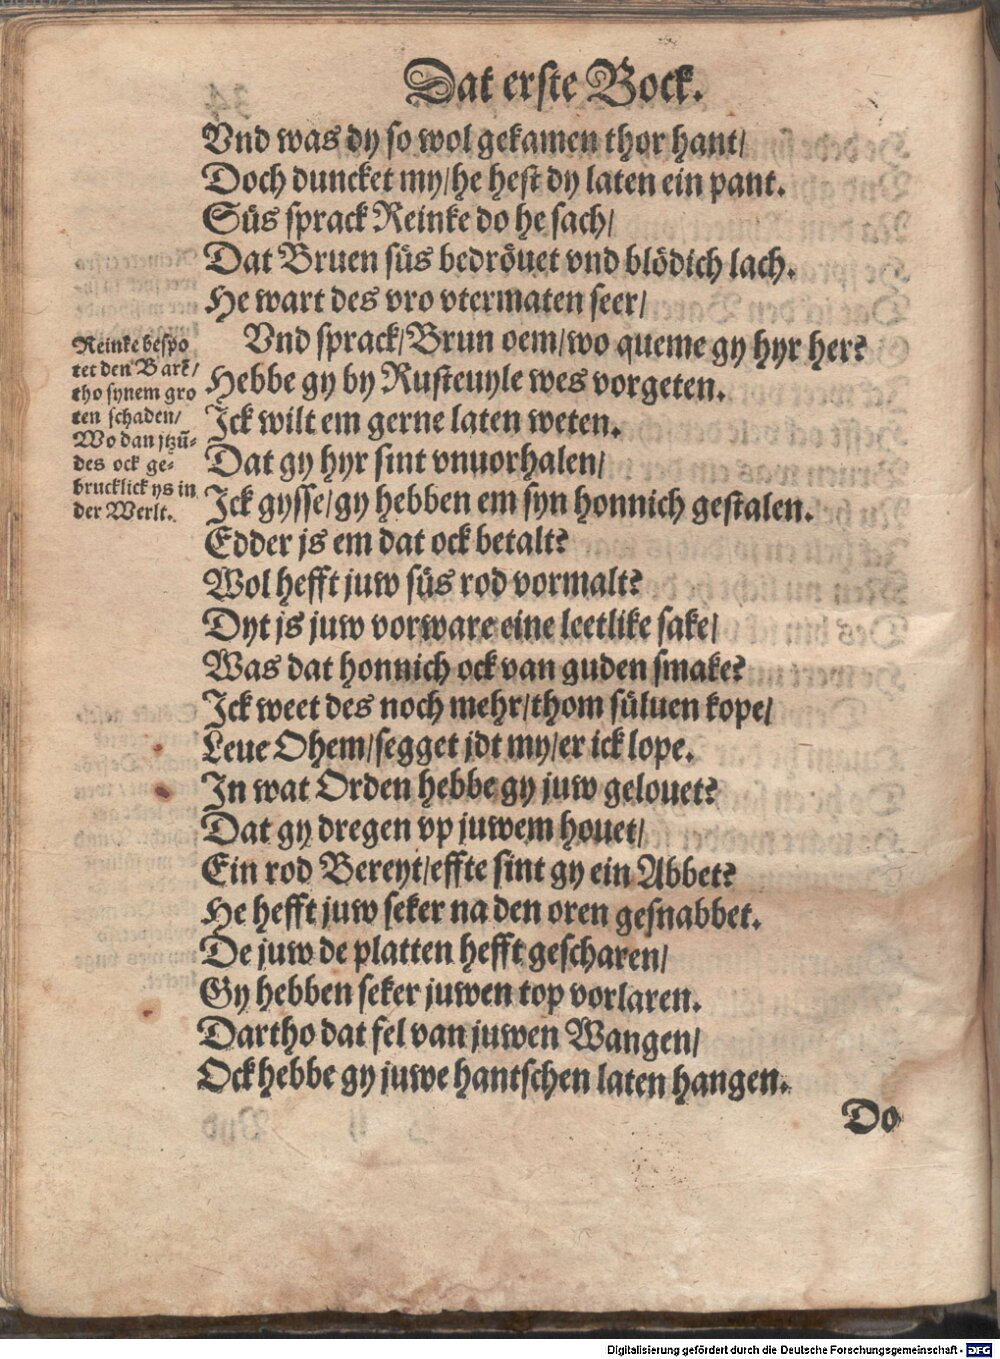 Dat erste Bock.
Vnd was dy so wol gekamen thor hant/
Doch duncket my/he hefft dy laten ein pant.
Süs sprack Reinke do he sach/
Dat Bruen süs bedröuet vnd blödich lach.
He wart des vro vtermaten seer/
Vnd sprack/Brun oem/wo queme gy hyr her?
Hebbe gy by Rusteuyle wes vorgeten.
Ick wilt em gerne laten weten.
Dat gy hyr sint vnuorhalen/
Ick gysse/gy hebben em syn honnich gestalen.
Edder js em dat ock betalt?
Wol hefft juw süs rod vormalt?
Dyt js juw vorware eine leetlike sake/
Was dat honnich ock van guden smake?
Ick weet des noch mehr/thom süluen kope/
Leue Ohem/segget jdt my/er ick lope.
In wat Orden hebbe gy juw gelouet?
Dat gy dregen vp juwem houet/
Ein rod Bereyt/effte sint gy ein Abbet?
He hefft juw seker na den oren gesnabbet.
De juw de platten hefft gescharen/
Gy hebben seker juwen top vorlaren.
Dartho dat fel van juwen Wangen/
Ock hebbe gy juwe hantschen laten hangen.
Do
Reinke bespo
tet den Barẽ/
tho synem gro
ten schaden/
Wo dan jtzū-
des ock ge-
brucklick ys in
der Werlt.
Digitalisierung gefördert durch die Deutsche Forschungsgemeinschaft - DFG